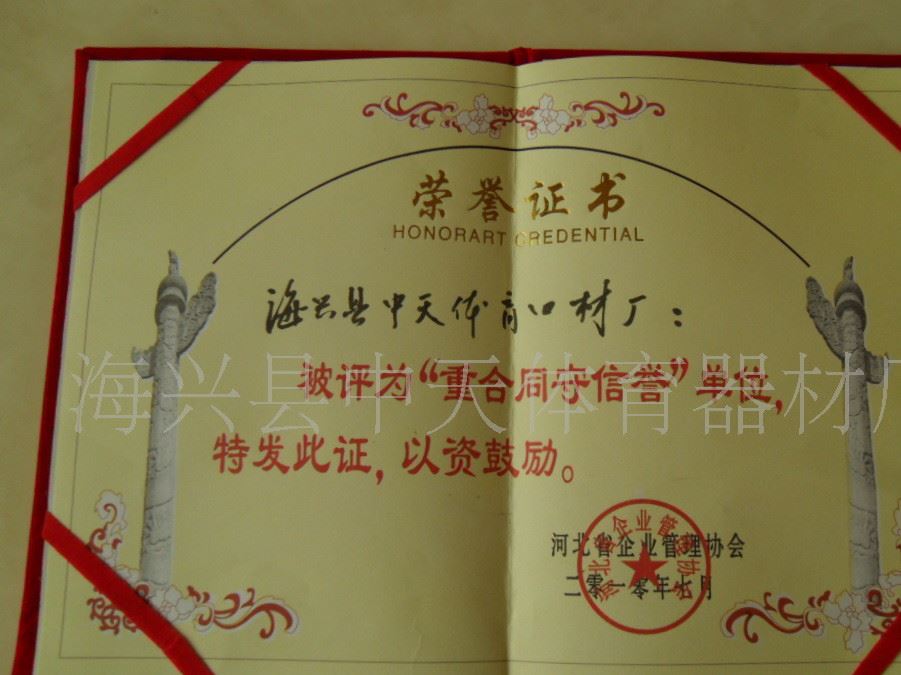 荣誉证书
HONORART CREDENTIAL
海兴县中天体育口材厂：
被评为“重合同守信誉”单位，
特发此证，以资鼓励。
河北省企业管理协会
二零一零年七月
河北省企业管理协会
海兴县中天体育器材厂